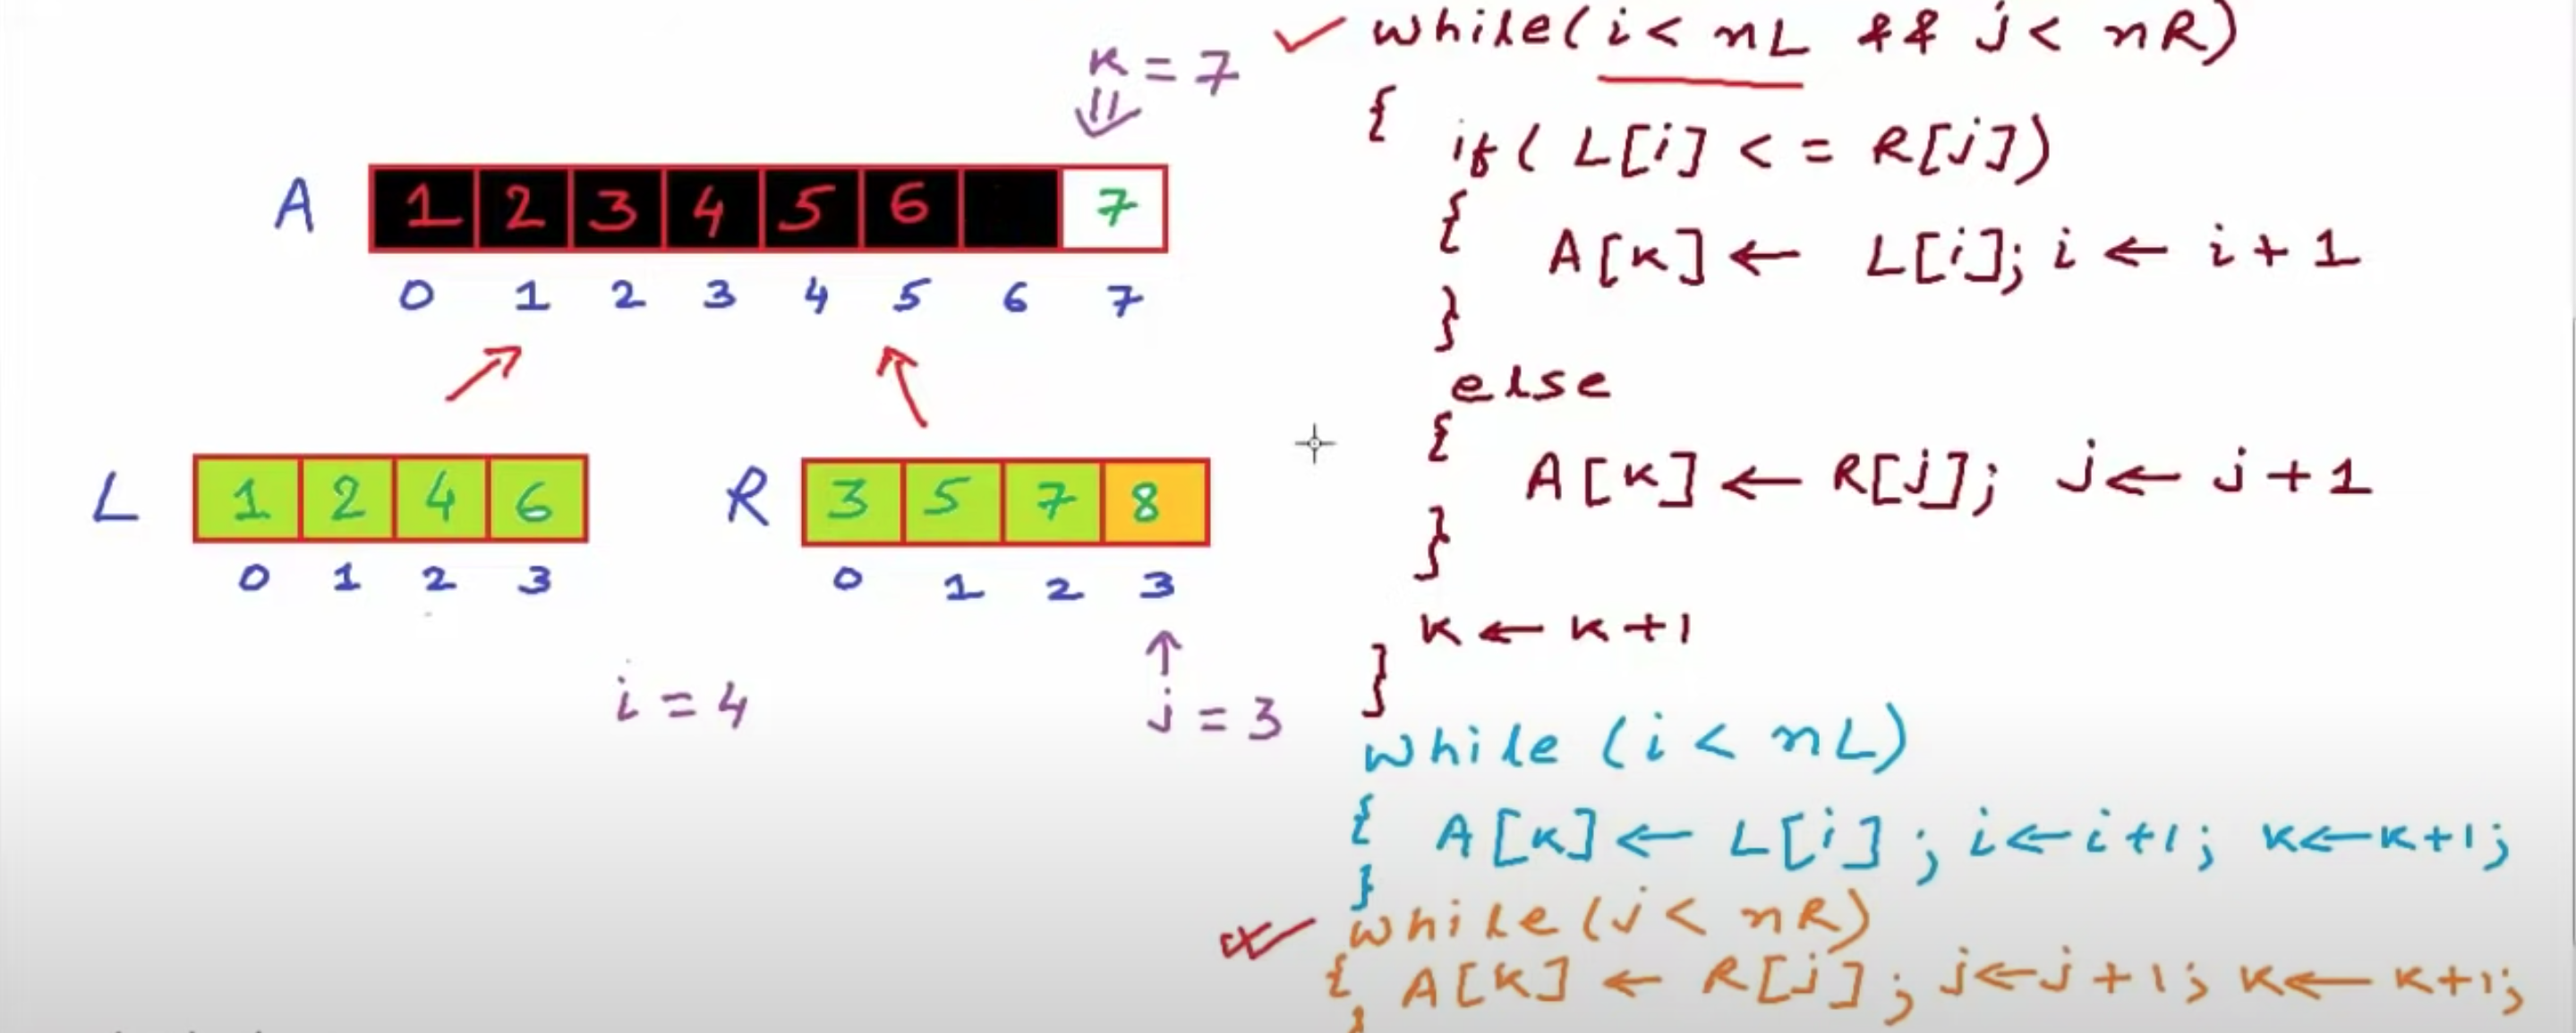 K = 7
A 1 2 3 4 5 6 7
0 1 2 3 4 5 6 7
L 1 2 4 6
0 1 2 3
i = 4
R 3 5 7 8
0 1 2 3
j = 3
while(i< nL && j< nR)
{
if( L[i] <= R[j])
{
A[K] ← L[i]; i ← i+1
}
else
{
A[K] ← R[j]; j← j+1
}
K ← K+1
}
while (i< nL)
{ A[K] ← L[i]; i←i+1; K←K+1;
}
while(j< nR)
{ A[K] ← R[j]; j←j+1; K← K+1;
}